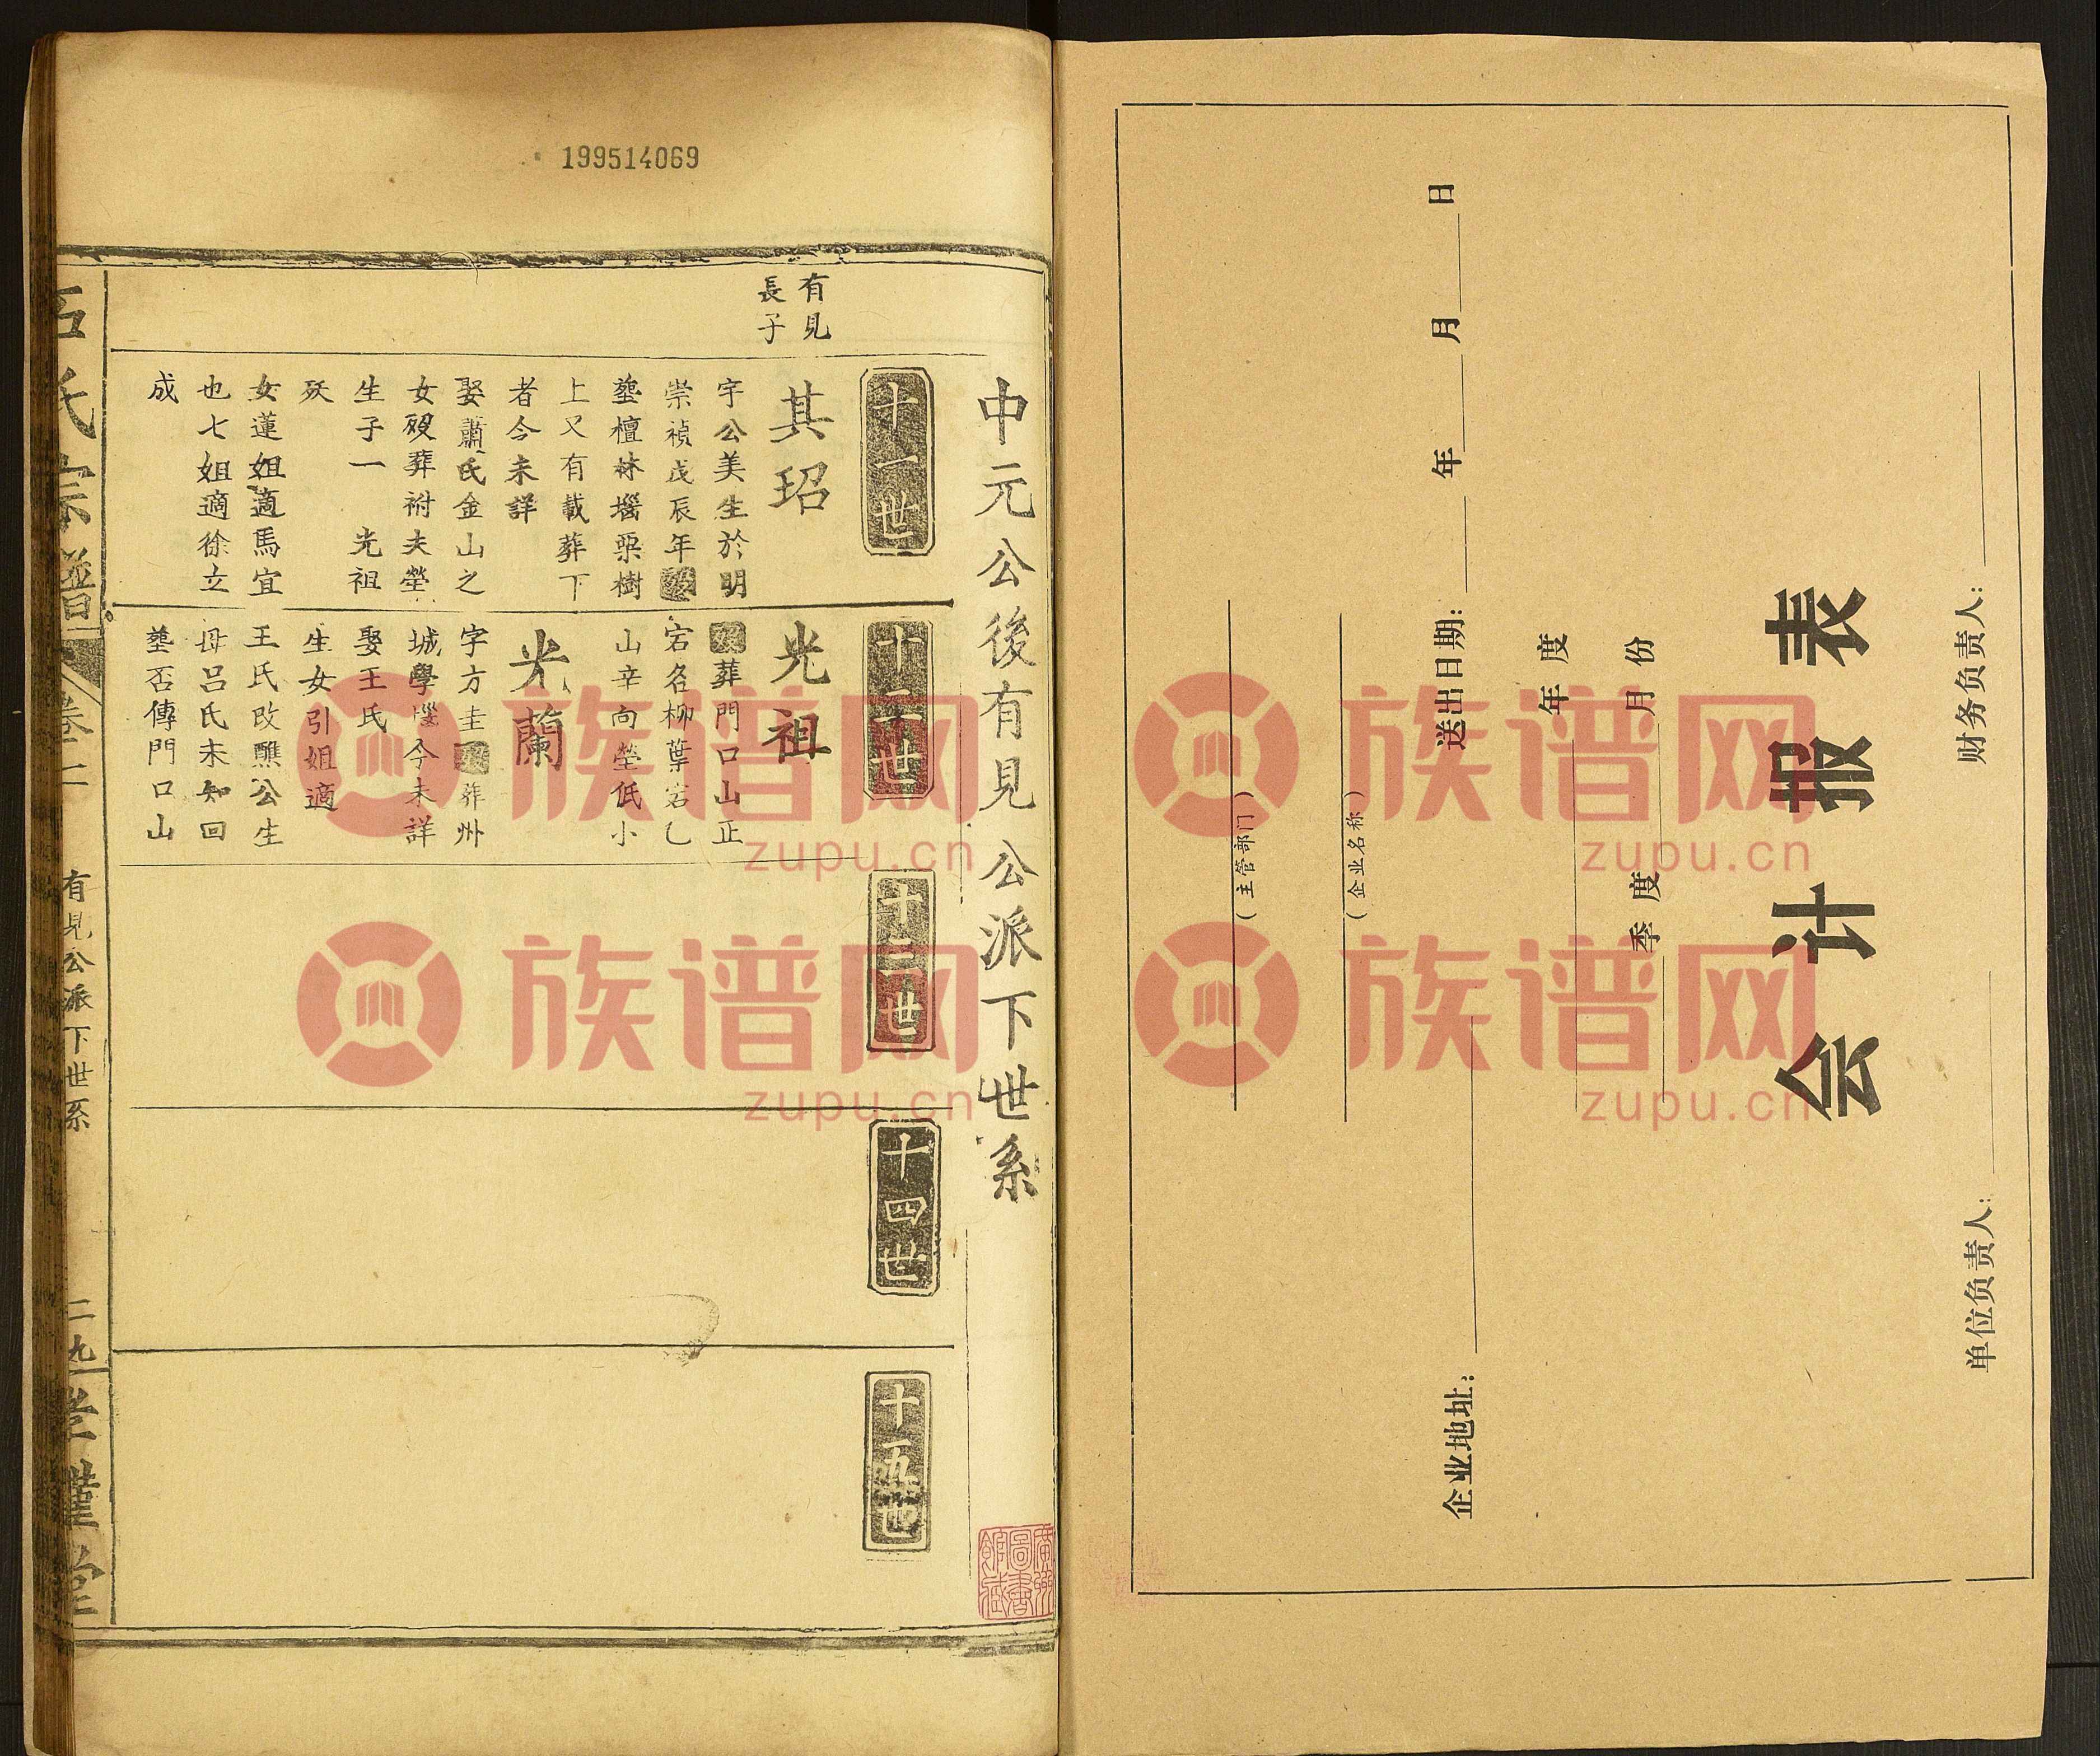 199514069
中元公後有見公派下世系
十一世
十二世
十三世
十四世
十五世
有見
長子
其玿
字公美生於明
崇禎戊辰年歿
塟檀林堖栗樹
上又有載葬丅
者今未詳
娶蕭氏金山之
女歿葬祔夫塋
生子一 光祖
殀
女蓮姐適馬宜
也七姐適徐立
成
光祖
歿葬門口山正
宕名柳葉宕乙
山辛向塋低小
光蘭
字方圭歿葬州
城學堖今未詳
娶王氏
生女引姐適
王氏改醮公生
母呂氏未知回
塟否傳門口山
石氏宗譜
卷二
有見公派下世系
二九
孝謹堂
廣州
圖書
館藏
会计报表
(主管部门)
(企业名称)
年度
季度 月份
企业地址: 送出日期: 年 月 日
单位负责人: 财务负责人:
族谱网
zupu.cn
族谱网
zupu.cn
族谱网
zupu.cn
族谱网
zupu.cn